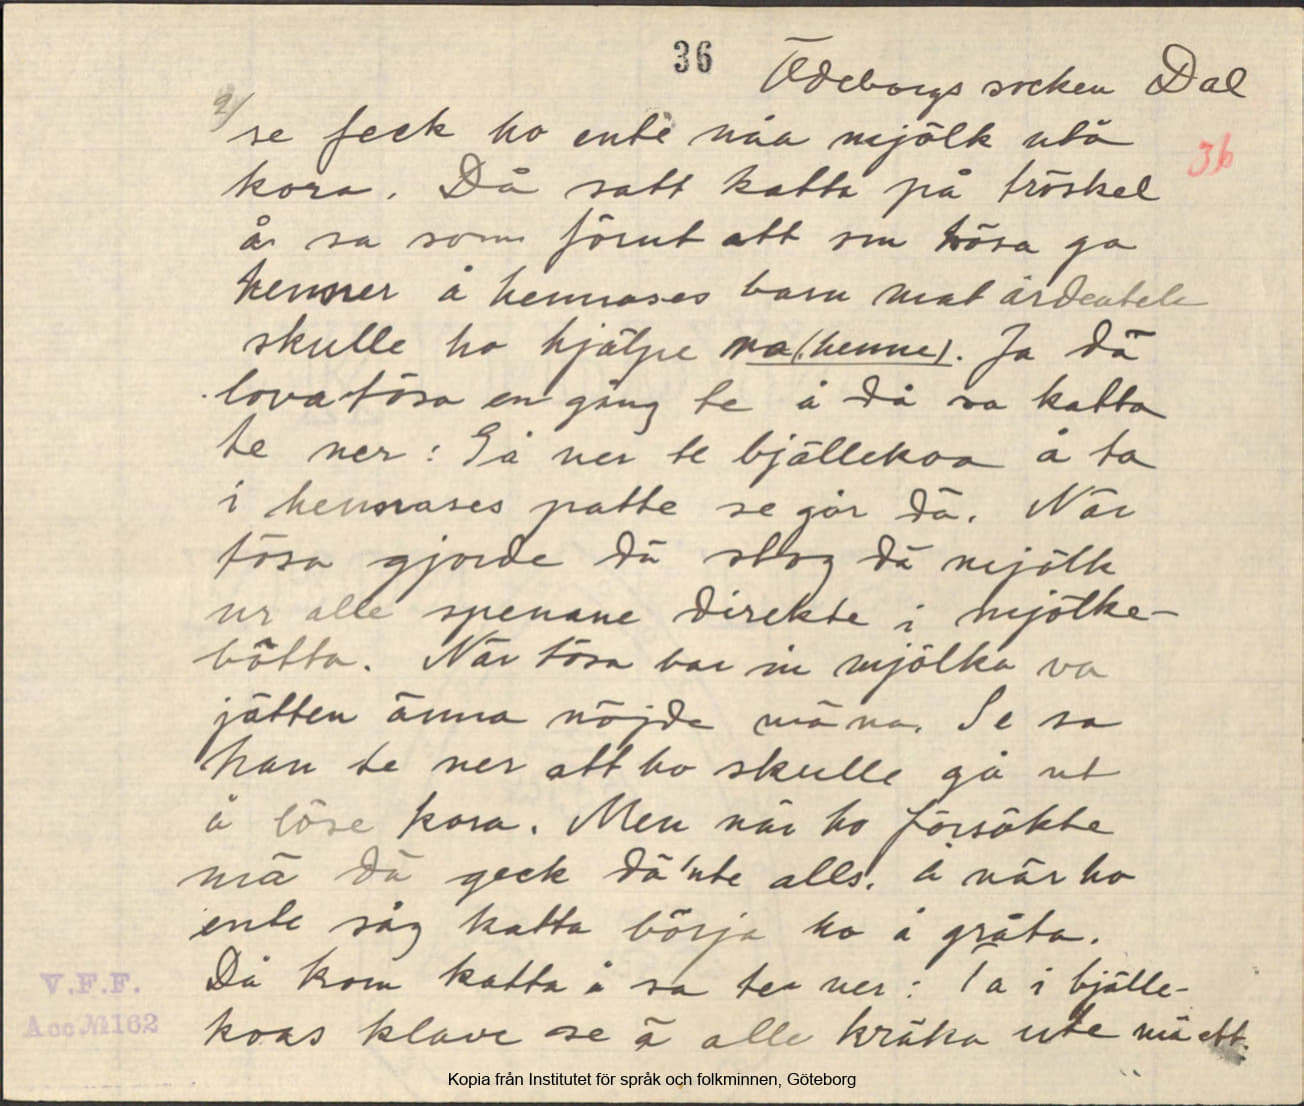 36
Ödeborgs socken Dal
2/
36
se feck ho ente nåa mjölk utå
kora. Då satt katta på tröskel
å sa som förut att om tösa ga
henner å hennases barn mat årdentele
skulle ho hjälpe na (henne). Ja dä
lova tösa en gång te å då sa katta
te ner: Gå ner te bjällekoa å ta
i hennases patte se går dä. När
tösa gjorde dä stog dä mjölk
ur alle spenane direkte i mjölke-
bötta. När tösa bar in mjölka va
jätten änna nöjde mä na. Se sa
han te ner att ho skulle gå ut
å löse kora. Men när ho försökte
mä dä geck dä'nte alls. Å når ho
ente såg katta börja ho å gråta.
Då kom katta å sa te ner: Ta i bjälle-
koas klave se ä alle kräka ute mä ett.
V.F.F.
Acc № 162
Kopia från Institutet för språk och folkminnen, Göteborg